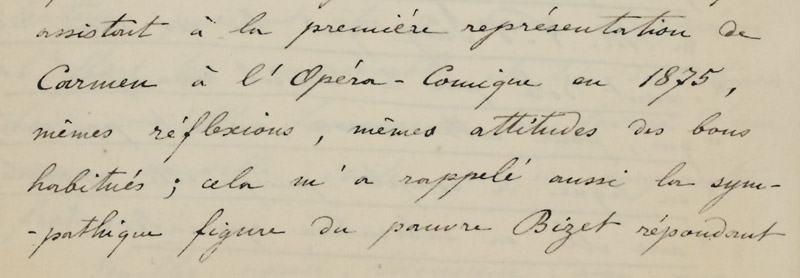 assistant à la première représentation de
Carmen à l'Opéra-Comique en 1875,
mêmes réflexions, mêmes attitudes des bons
habitués; cela m'a rappelé aussi la sym-
-pathique figure du pauvre Bizet répondant